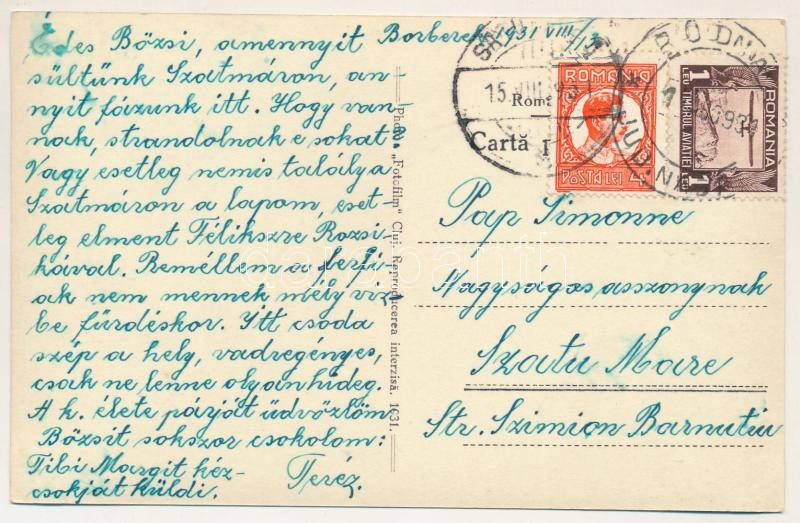 Borberek, 1931 VIII/13.
Édes Bözsi, amennyit
sültünk Szatmáron, an-
nyit fázunk itt. Hogy van-
nak, strandolnak e sokat
Vagy esetleg nemis találja
Szatmáron a lapom, eset-
leg elment Félikszre Rozsi-
kával. Remélem a férfi-
ak nem mennek mély víz-
be fürdéskor. Itt csoda
szép a hely, vadregényes,
csak ne lenne olyanhideg.
A k. élete párját üdvözlöm
Bözsit sokszor csokolom:
Teréz.
Tibi Margit kéz-
csokját küldi.
Photo „Fotofilm" Cluj. Reproducerea interzisă. 1931.
Cartă
ROMANIA
POSTA LEI 4
1 LEU TIMBRUL AVIAȚIEI 1
ROMANIA
15 VIII
Pap Simonne
Nagyságos asszonynak
Szatu Mare
Str. Szimion Barnutiu
darabanth